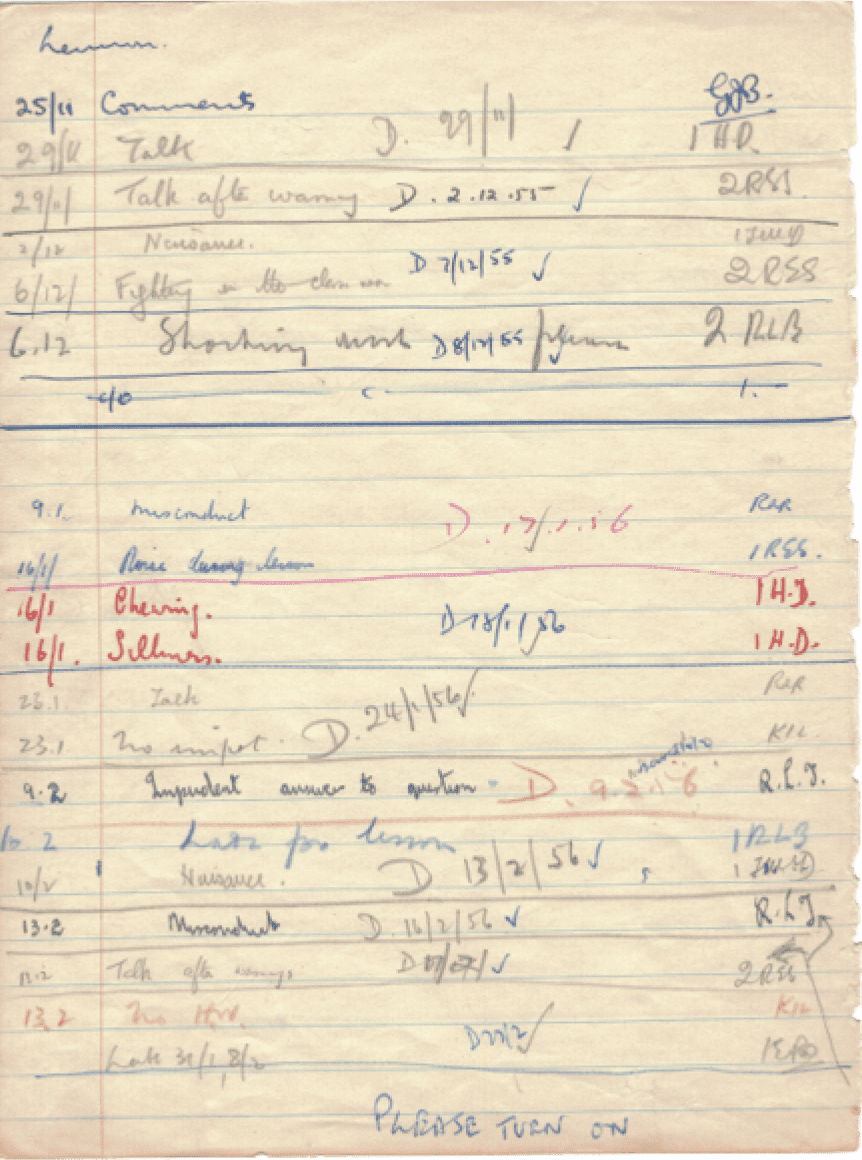 Lennon.
25/11 Comments GJB.
29/11 Talk D. 29/11 ✓ 1 H.D.
29/11 Talk after warning D. 2.12.55 ✓ 2 RSS.
2/12 Nuisance. 1
D 7/12/55 ✓
6/12/ Fighting in the class room 2 RSS
6.12 Shocking work D 8/12/55 2 RLB
c/o 1.
9.1. misconduct D. 17/1.56 RAR
16/1/ Noise during lesson 1 RSS.
16/1 Chewing. 1 H.D.
D 18/1/56
16/1. Silliness. 1 H.D.
23.1. Talk RAR
D. 24/1/56 ✓
23.1 No impot. KIL
9.2 Impudent answer to question - D. 9.2.56. R.L.J.
10.2 Late for lesson 1 RLB
10/2 Nuisance. D 13/2/56 ✓ 1
13.2 Misconduct D. 16/2/56 ✓ R.L.J.
Talk after warnings D ✓ 2 RSS
13.2 No H.W. KIL
D 22/2 ✓
Late 31/1, 8/2
PLEASE TURN ON